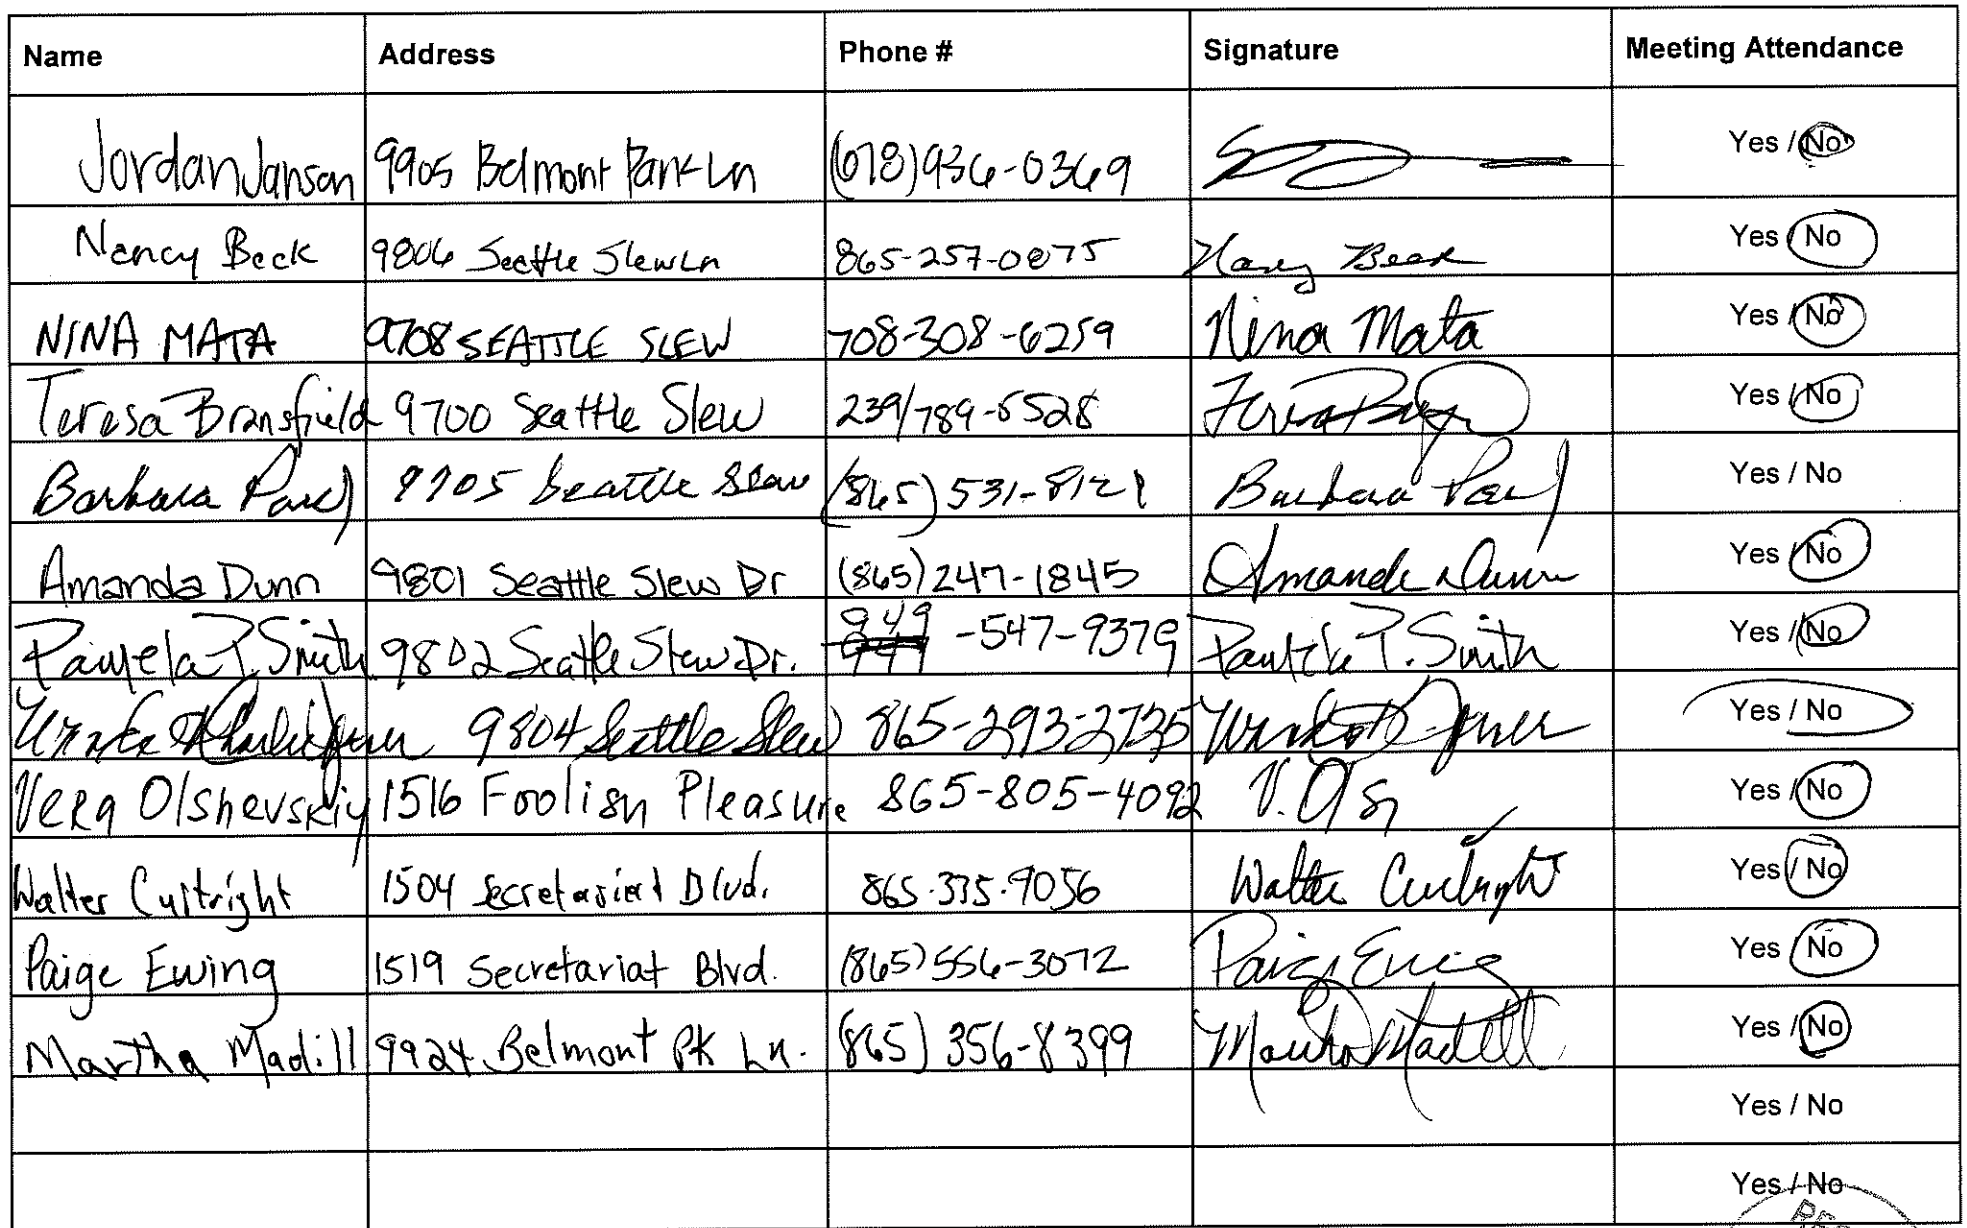 Name Address Phone # Signature Meeting Attendance
Jordan Janson 9905 Belmont Park Ln (678)936-0369 Yes / No
Nancy Beck 9806 Seattle Slew Ln 865-257-0875 Nancy Beck Yes / No
NINA MATA 9708 SEATTLE SLEW 708-308-6259 Nina Mata Yes / No
Teresa Bransfield 9700 Seattle Slew 239/789-5528 Yes / No
Barbara 9705 Seattle Slew (865) 531-8121 Barbara Yes / No
Amanda Dunn 9801 Seattle Slew Dr (865)247-1845 Amanda Dunn Yes / No
Pamela P. Smith 9802 Seattle Slew Dr. 949 -547-9379 Pamela P. Smith Yes / No
9804 Seattle Slew 865-293-2735 Yes / No
Vera Olshevskiy 1516 Foolish Pleasure 865-805-4092 V. Ols Yes / No
Walter Curtright 1504 Secretariat Blvd. 865-335-9056 Walter Curtright Yes / No
Paige Ewing 1519 Secretariat Blvd. (865)556-3072 Paige Ewing Yes / No
Martha Madill 9924 Belmont Pk Ln. (865) 356-8399 Martha Madill Yes / No
Yes / No
Yes / No